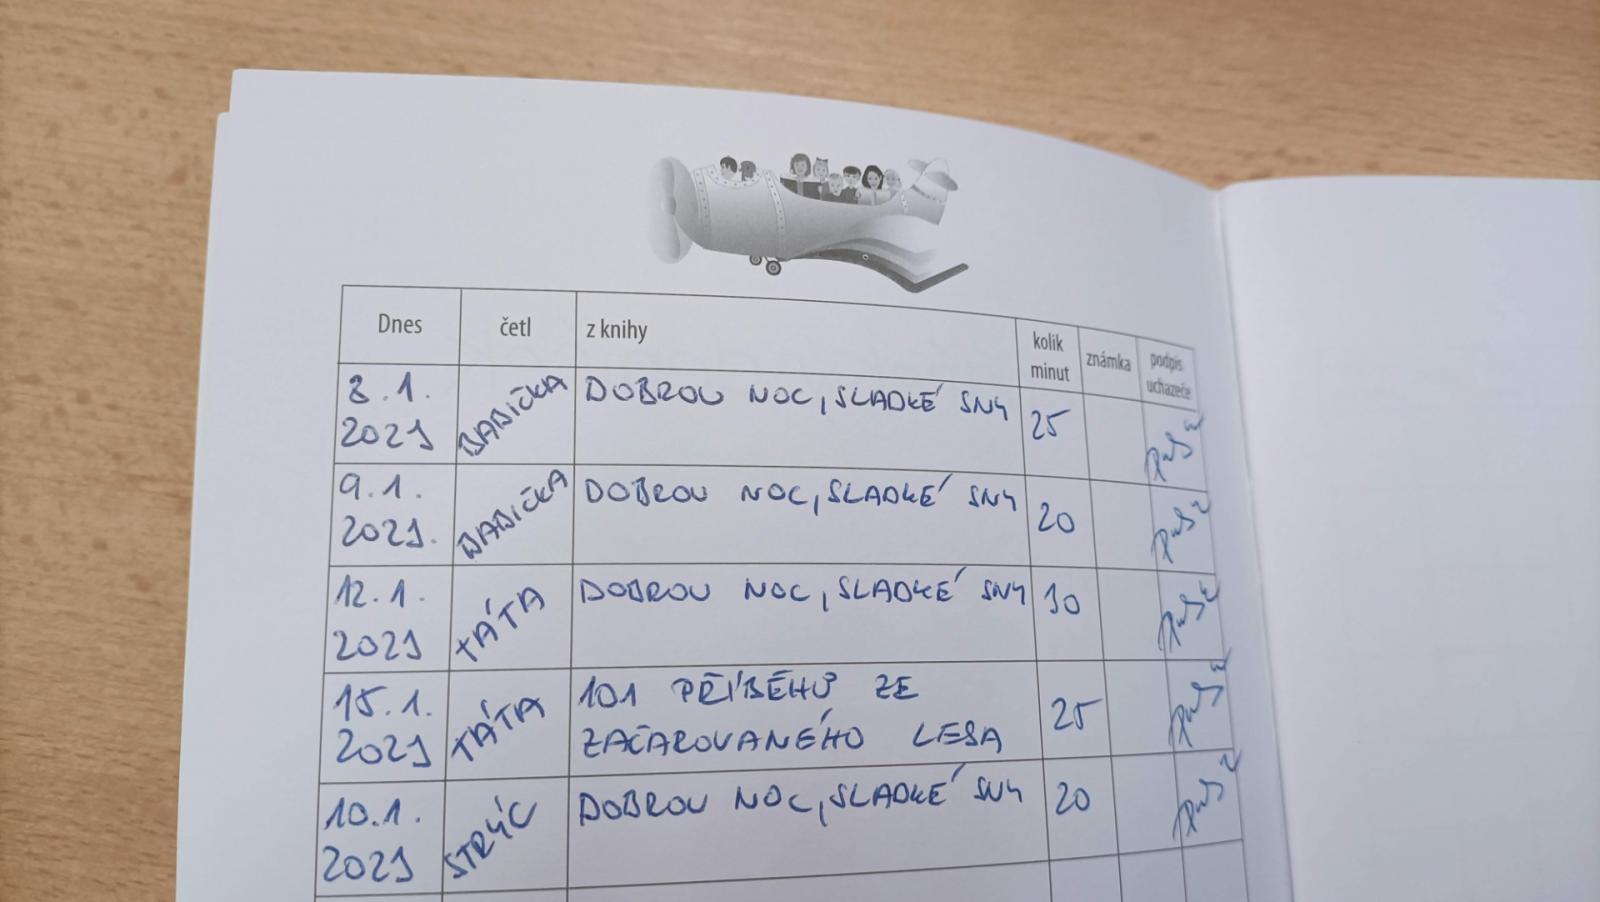 Dnes četl z knihy kolik minut známka podpis uchazeče
8.1. 2021 BABIČKA DOBROU NOC, SLADKÉ SNY 25
9.1. 2021. BABIČKA DOBROU NOC, SLADKÉ SNY 20
12.1. 2021 TÁTA DOBROU NOC, SLADKÉ SNY 10
15.1. 2021 TÁTA 101 PŘÍBĚHŮ ZE
ZAČAROVANÉHO LESA 25
10.1. 2021 STRÝC DOBROU NOC, SLADKÉ SNY 20